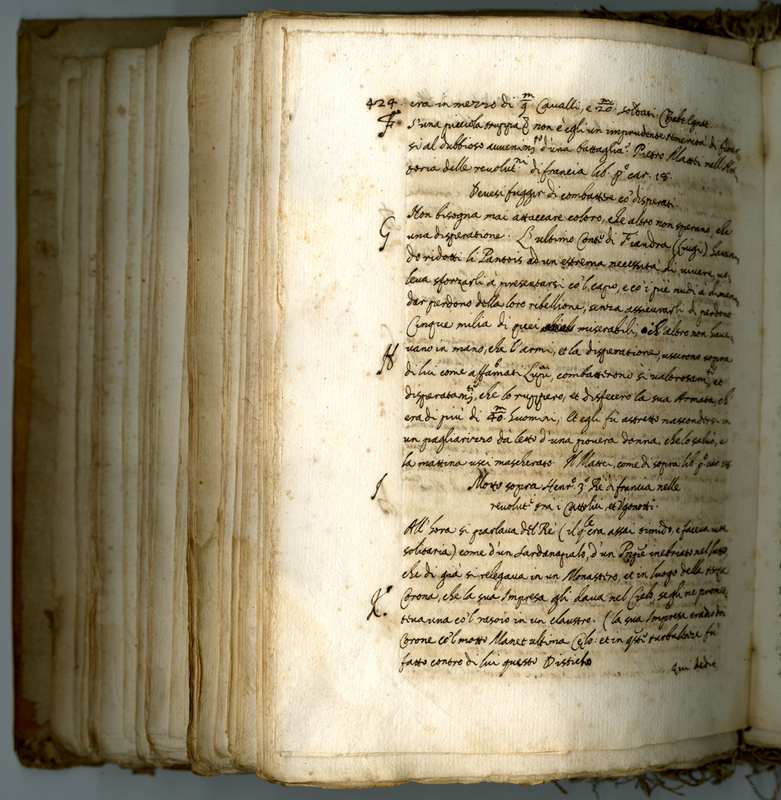 424. era in mezzo di 9 m Cavalli, e 20 m soldati.
F S'una piccola truppa non è egli un imprudente temerità di
si al dubbioso avvenim.to d'una battaglia. Pietro Mattei nell'
toria delle revolut.ni di francia lib. p.o car. 18.
Devesi fuggir di combattere co' disperati.
G Non bisogna mai attaccare coloro, che altro non sperano, che
una disperatione. L'ultimo Conte di Fiandra (Luigi) haven
do ridotti li Pantois ad un estrema necessità di vivere, vo
leva sforzarli à presentarsi co'l capo, e co' i piè nudi à diman
dar perdono della loro ribellione, senza assicurarli di perdono
Cinque milia di quei miserabili, ch'altro non have
vano in mano, che l'armi, et la disperatione, uscirono sopra
H di lui come affamati Lupi, combatterono sì valorosam.te, et
disperatam.te, che lo ruppero, et disfecero la sua Armata, ch'
era di più di 40 m huomini, Et egli fù astretto nascondersi in
un pagliarizzo da letto d'una povera donna, che lo salvò, e
la mattina uscì mascherato. Il Mattei, come di sopra lib. p.o car. 18
I Motto sopra Henr.o 3.o Rè di francia nelle
revolut.i tra i Cattolici, et Ugonotti.
All'hora si parlava del Rè (il q.le era assai timido, e faceva vita
solitaria) come d'un Sardanapalo, d'un Prn̄pe inebriato nel lusso,
che di già si relegava in un Monastero, et in luogo della terza
K Corona, che la sua Impresa gli dava nel Cielo, se gli ne prome
teva una co'l rasoio in un claustro. (la sua Impresa erano tre
Corone co'l motto Manet ultima Cęlo. et in q.ste turbulenze fù
fatto contro di lui questo Disticho
Qui dedit